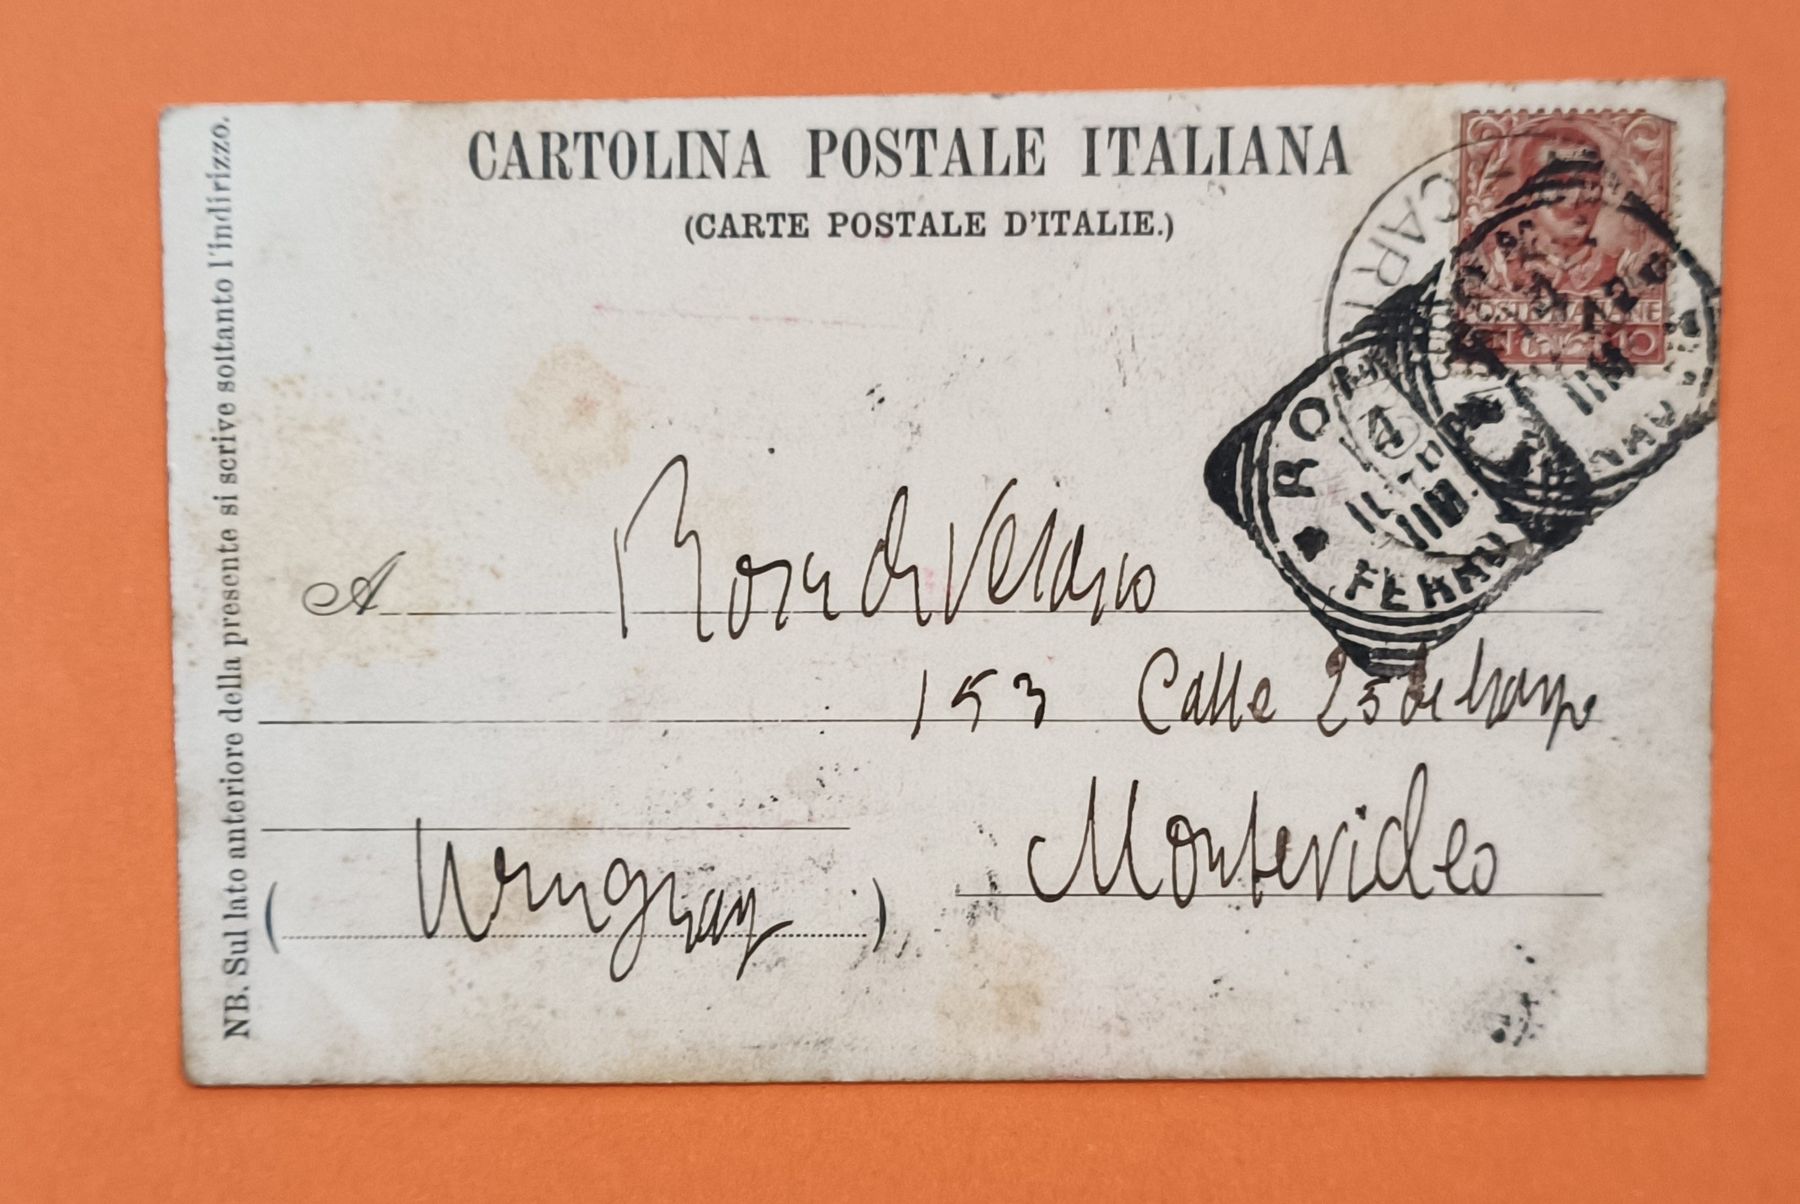 CARTOLINA POSTALE ITALIANA
(CARTE POSTALE D'ITALIE.)
NB. Sul lato anteriore della presente si scrive soltanto l'indirizzo.
POSTE ITALIANE
10
CART
ROMA
4
FERROV
A Rosa de Velasco
153 Calle 25 de Mayo
Montevideo
( Uruguay )